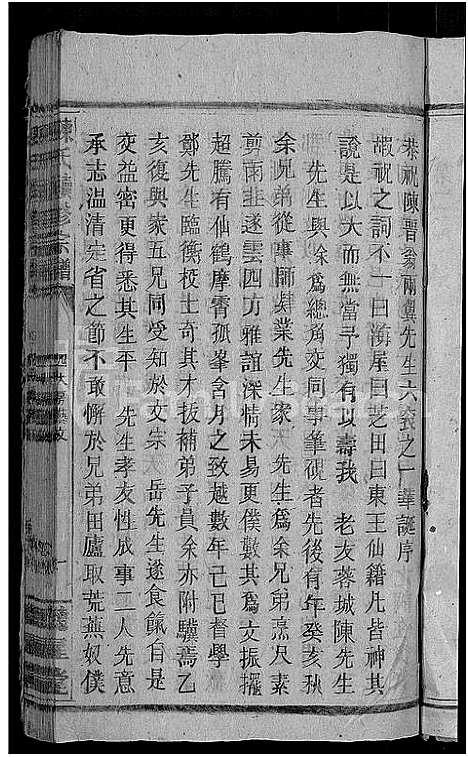 恭祝陳晋翁雨翼先生六袠之一華誕序
嘏祝之詞不一曰海屋曰芝田曰東王仙籍凡皆神其
說是以大而無當予獨有以壽我 老友蓉城陳先生
先生與余爲總角交同事筆硯者先後有年癸亥秋
余兄弟從事師肆業先生家 先生爲余兄弟烹尺素
剪雨韭遂雲四方雅誼深情未易更僕數其爲文振擢
超騰有仙鶴摩霄孤峯含月之致越數年己巳督學
鄭先生臨衡校士奇其才拔補弟子員余亦附驥焉乙
亥復與家五兄同受知於文宗 岳先生遂食餼自是
交益密更得悉其生平 先生孝友性成事二人先意
承志温清定省之節不敢懈於兄弟田廬取荒蕪奴僕
陳氏續修宗譜
一
堂